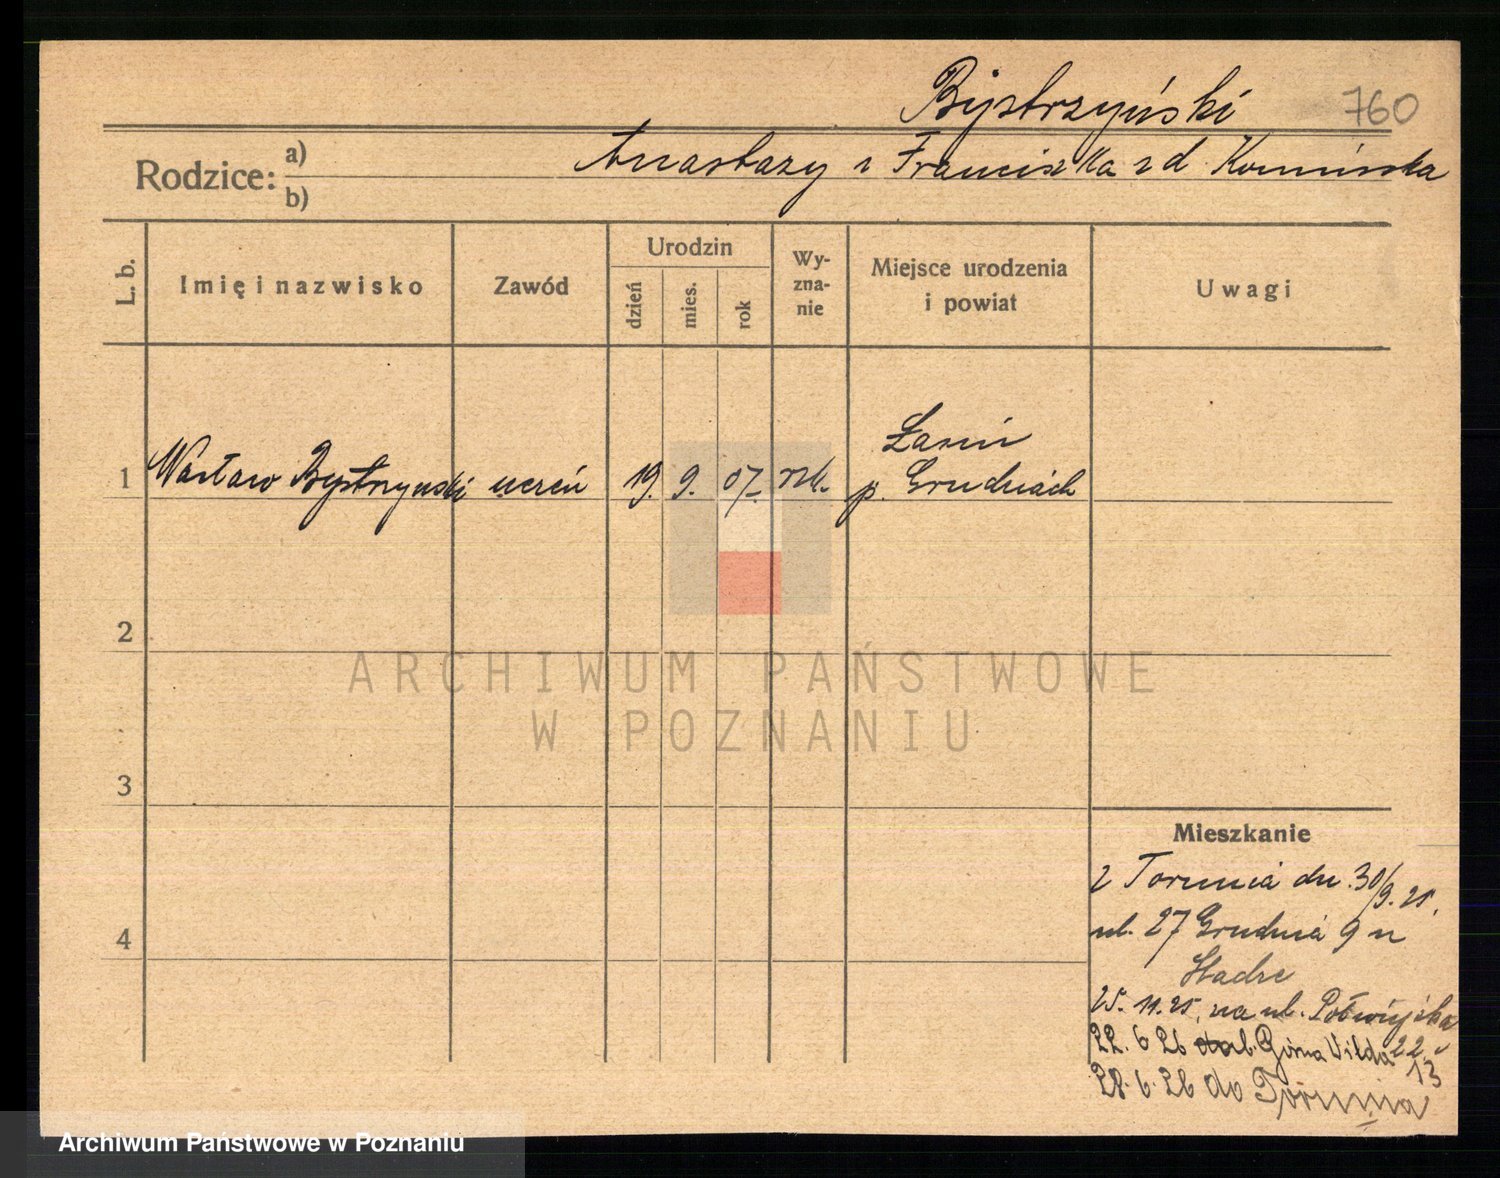 Bystrzyński 760
Rodzice: a) Anastazy i Franciszka z d. Kamińska
b)
L. b. Imię i nazwisko Zawód Urodzin dzień mies. rok Wy-zna-nie Miejsce urodzenia i powiat Uwagi
1 Wacław Bystrzynski uczeń 19. 9. 07. rzk. Łasin
p. Grudziądz
2
ARCHIWUM PAŃSTWOWE
W POZNANIU
3
Mieszkanie
z Torunia dn. 30/9. 25.
4
ul. 27 Grudnia 9 u
25. 11. 25. na ul. Półwiejska
22.
22. 6 26 ul. Górna Wilda
13
28. 6. 26 do Torunia
Archiwum Państwowe w Poznaniu